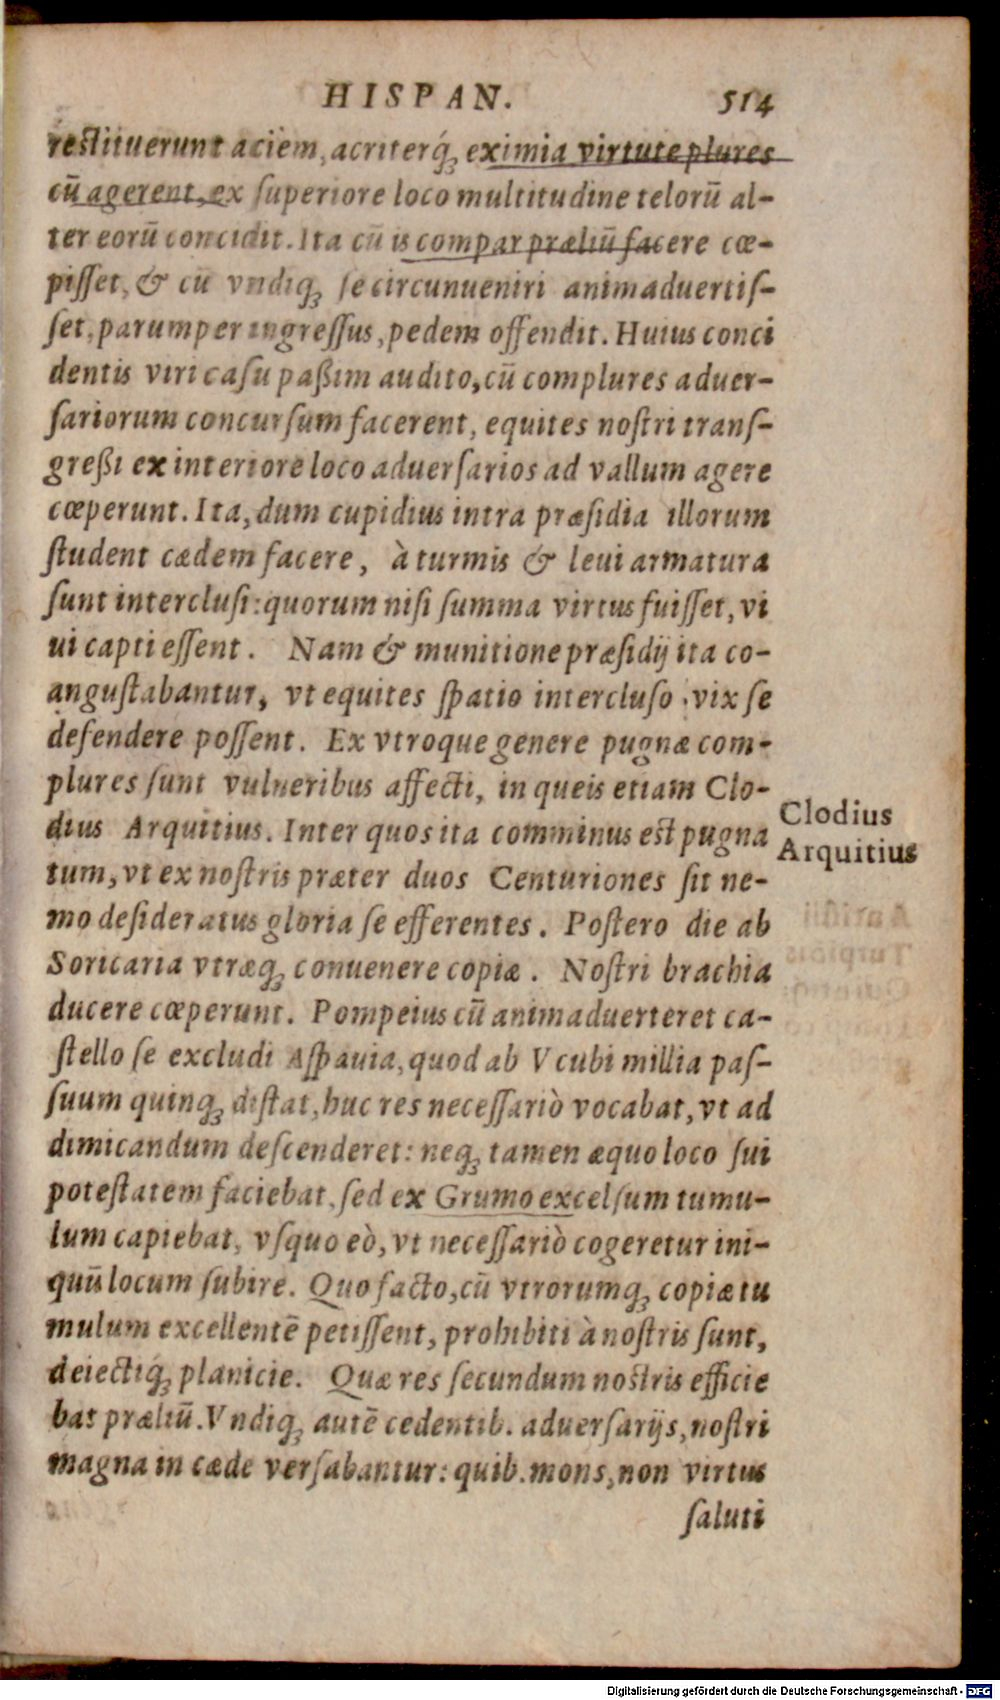 HISPAN. 514
restituerunt aciem, acriterq́ꝫ eximia virtute plures
cū agerent, ex superiore loco multitudine telorū al-
ter eorū concidit. Ita cū is compar præliū facere cœ-
pisset, & cū vndiqꝫ se circunueniri animaduertis-
set, parumper ingressus, pedem offendit. Huius conci
dentis viri casu paßim audito, cū complures aduer-
sariorum concursum facerent, equites nostri trans-
greßi ex interiore loco aduersarios ad vallum agere
cœperunt. Ita, dum cupidius intra præsidia illorum
student cædem facere, à turmis & leui armatura
sunt interclusi: quorum nisi summa virtus fuisset, vi
ui capti essent. Nam & munitione præsidij ita co-
angustabantur, vt equites spatio intercluso vix se
defendere possent. Ex vtroque genere pugnæ com-
plures sunt vulneribus affecti, in queis etiam Clo-
dius Arquitius. Inter quos ita comminus est pugna
tum, vt ex nostris præter duos Centuriones sit ne-
mo desideratus gloria se efferentes. Postero die ab
Soricaria vtræqꝫ conuenere copiæ. Nostri brachia
ducere cœperunt. Pompeius cū animaduerteret ca-
stello se excludi Aspauia, quod ab Vcubi millia pas-
suum quinqꝫ distat, huc res necessariò vocabat, vt ad
dimicandum descenderet: neqꝫ tamen æquo loco sui
potestatem faciebat, sed ex Grumo excelsum tumu-
lum capiebat, vsquo eò, vt necessariò cogeretur ini-
quū locum subire. Quo facto, cū vtrorumqꝫ copiæ tu
mulum excellentē petissent, prohibiti à nostris sunt,
deiectiq́ꝫ planicie. Quæ res secundum nostris efficie
bat præliū. Vndiqꝫ autē cedentib. aduersarijs, nostri
magna in cæde versabantur: quib. mons, non virtus
saluti
Clodius
Arquitius
Digitalisierung gefördert durch die Deutsche Forschungsgemeinschaft - DFG